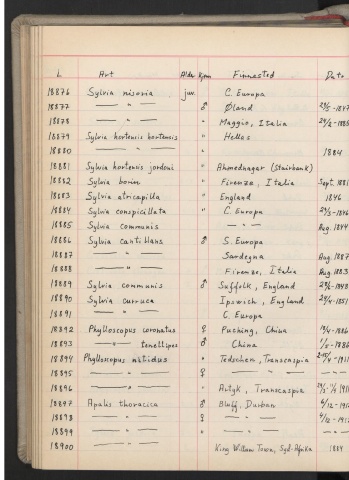 L Art Alder Kjønn Finnested Dato
18876 Sylvia nisoria juv. C. Europa
18877 — " — ♂ Øland
18878 — " — " Maggio, Italia
18879 Sylvia hortensis hortensis " Hellas
18880 — " — " 1884
18881 Sylvia hortensis jerdoni " Ahmednagar (Stairbank)
18882 Sylvia borin " Firenze, Italia Sept. 1881
18883 Sylvia atricapilla " England 1846
18884 Sylvia conspicillata " C. Europa
18885 Sylvia communis — " — Aug. 1844
18886 Sylvia cantillans ♂ S. Europa
18887 — " — Sardegna Aug. 1887
18888 — " — Firenze, Italia Aug. 1883
18889 Sylvia communis ♂ Suffolk, England
18890 Sylvia curruca " Ipswich, England
18891 — " — C. Europa
18892 Phylloscopus coronatus ♀ Puching, China
18893 — " — tenellipes ♂ China
18894 Phylloscopus nitidus " Tedschen, Transcaspia
18895 — " — ♀ — " —
18896 — " — " Artyk, Transcaspia
18897 Apalis thoracica ♂ Bluff, Durban
18898 — " — ♀ — " —
18899 — " — " — " —
18900 — " — King William Town, Syd-Afrika